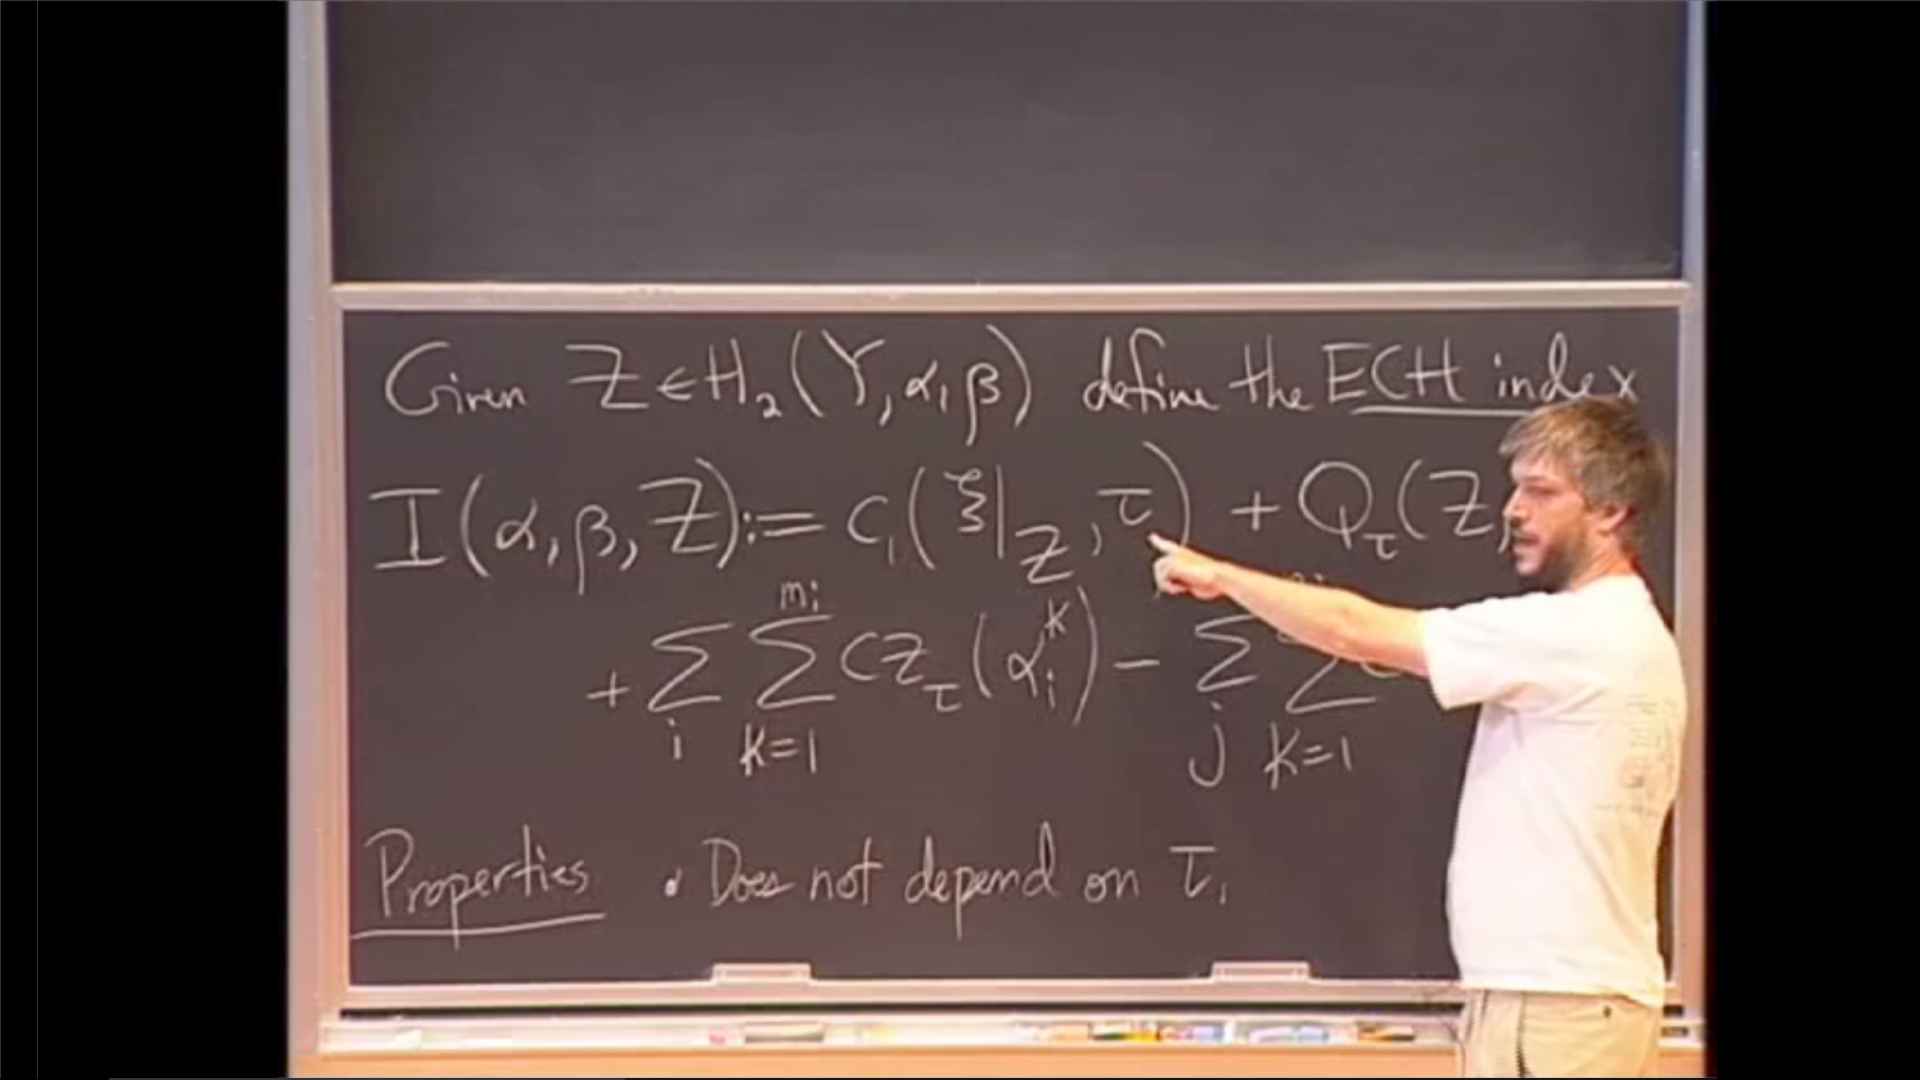 Given Z ∈ H₂(Y, α, β) define the ECH index
I(α, β, Z) := c₁(ξ|_Z, τ) + Q_τ(Z,
+ Σ_i Σ_{k=1}^{m_i} CZ_τ(α_i^k) − Σ_j Σ_{k=1}
Properties • Does not depend on τ.